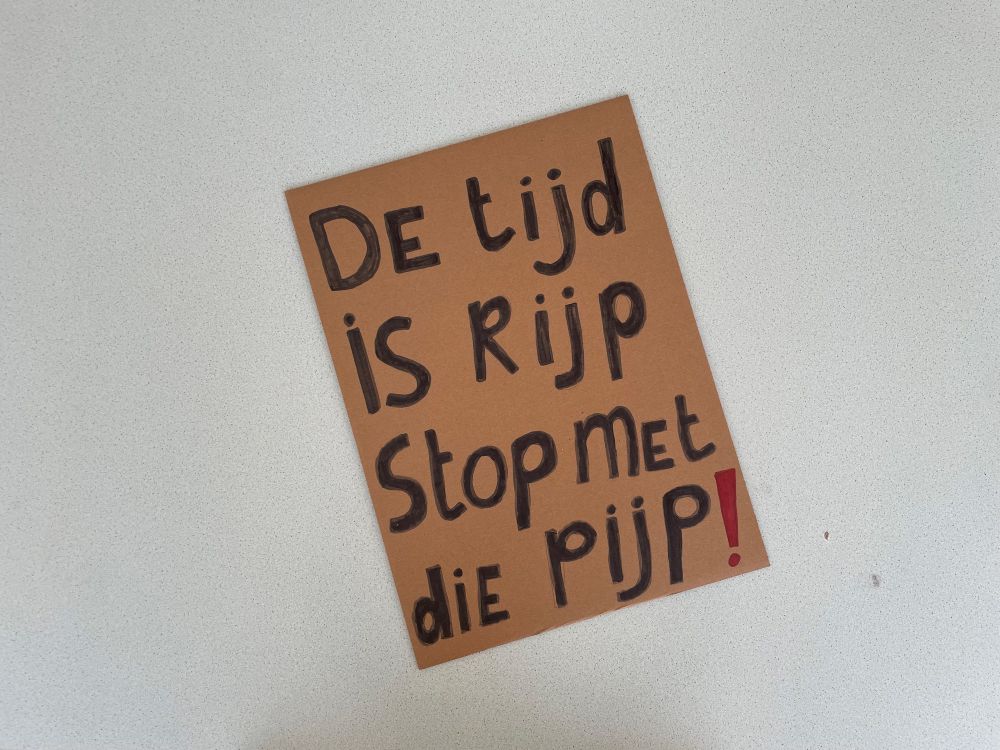 DE tijd
iS Rijp
Stop mEt
diE pijp!